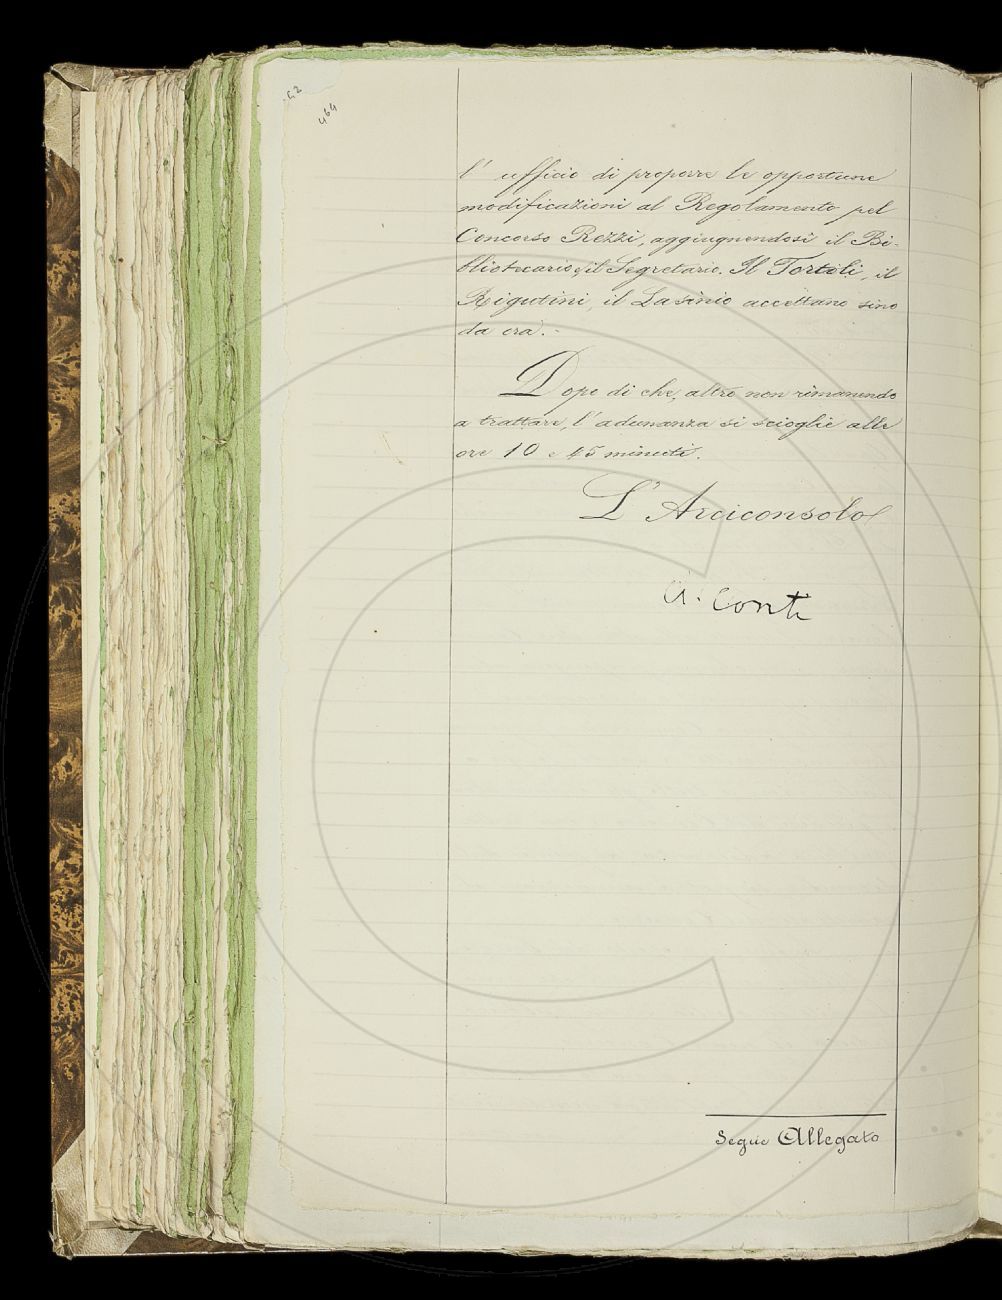 62
464
l' ufficio di proporre le opportune
modificazioni al Regolamento pel
Concorso Rezzi, aggiugnendosi il Bi-
bliotecario e il Segretario. Il Tortoli, il
Rigutini, il Lasinio accettano sino
da ora.-
Dopo di che, altro non rimanendo
a trattare, l' adunanza si scioglie alle
ore 10 e 45 minuti.
L' Arciconsolo
A. Conti
Segue Allegato